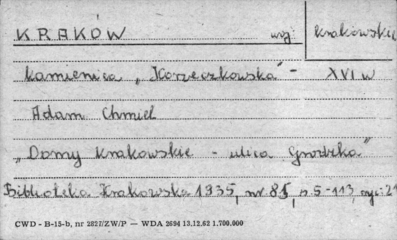 KRAKÓW woj. krakowskie
Kamienica „Korzeczkowska" - XVI w
Adam Chmiel
„Domy krakowskie - ulica Grodzka"
Biblioteka Krakowska 1935, nr 81, s. 5-113, ryc. 21
CWD - B-15-b, nr 2827/ZW/P — WDA 2694 13.12.62 1.700.000